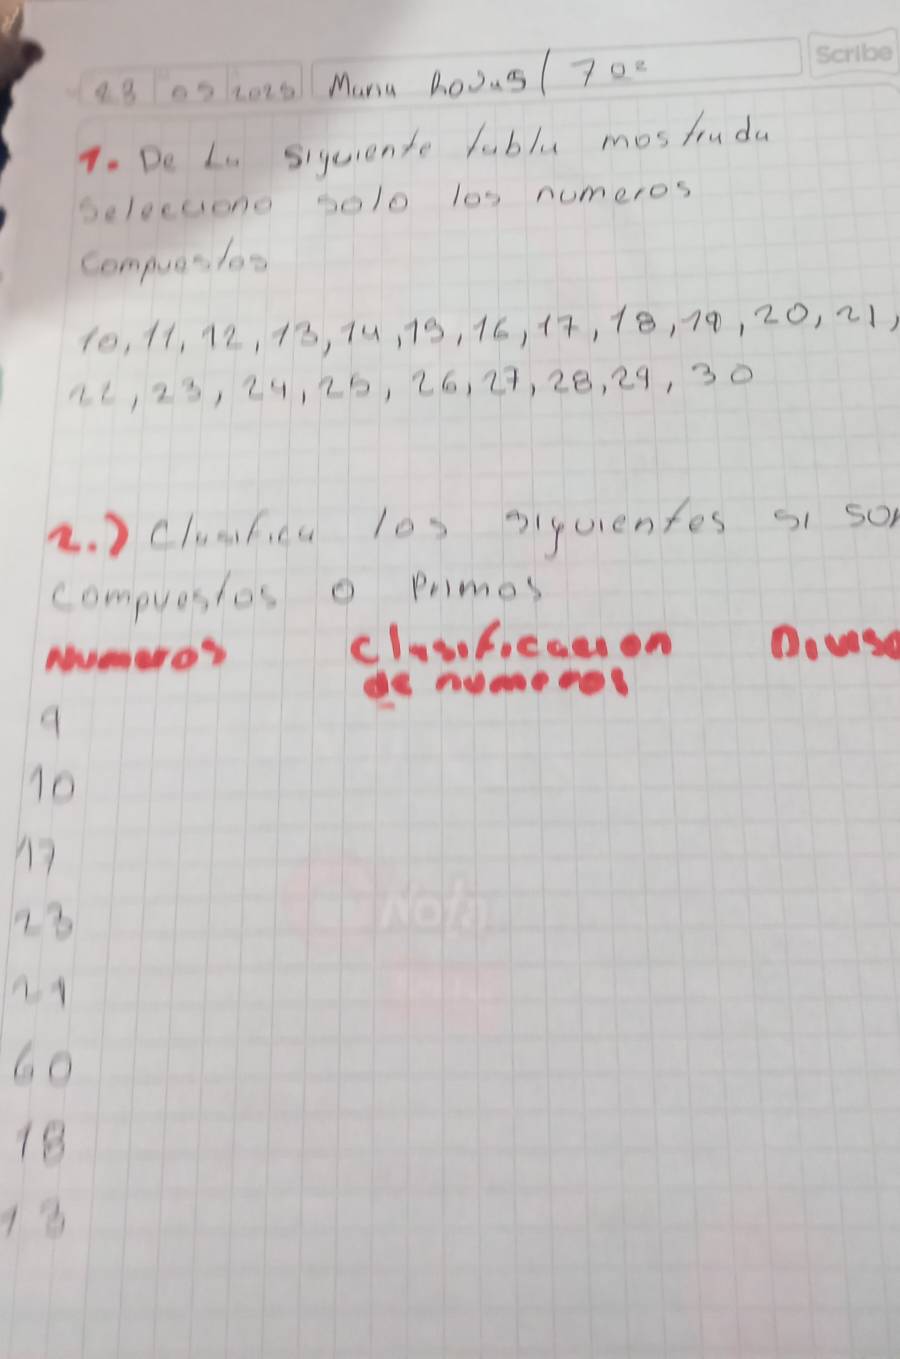 Scribe
María Rojas / 702
1. De La siguiente tabla mostrada
seleccione solo los numeros
compuestos
10, 11, 12, 13, 14, 15, 16, 17, 18, 19, 20, 21,
22, 23, 24, 25, 26, 27, 28, 29, 30
2.) Clasifica los siguientes si son
compuestos o Primos
Numeros Clasificacion Diviso
de numeros
9
10
17
23
21
60
18
13